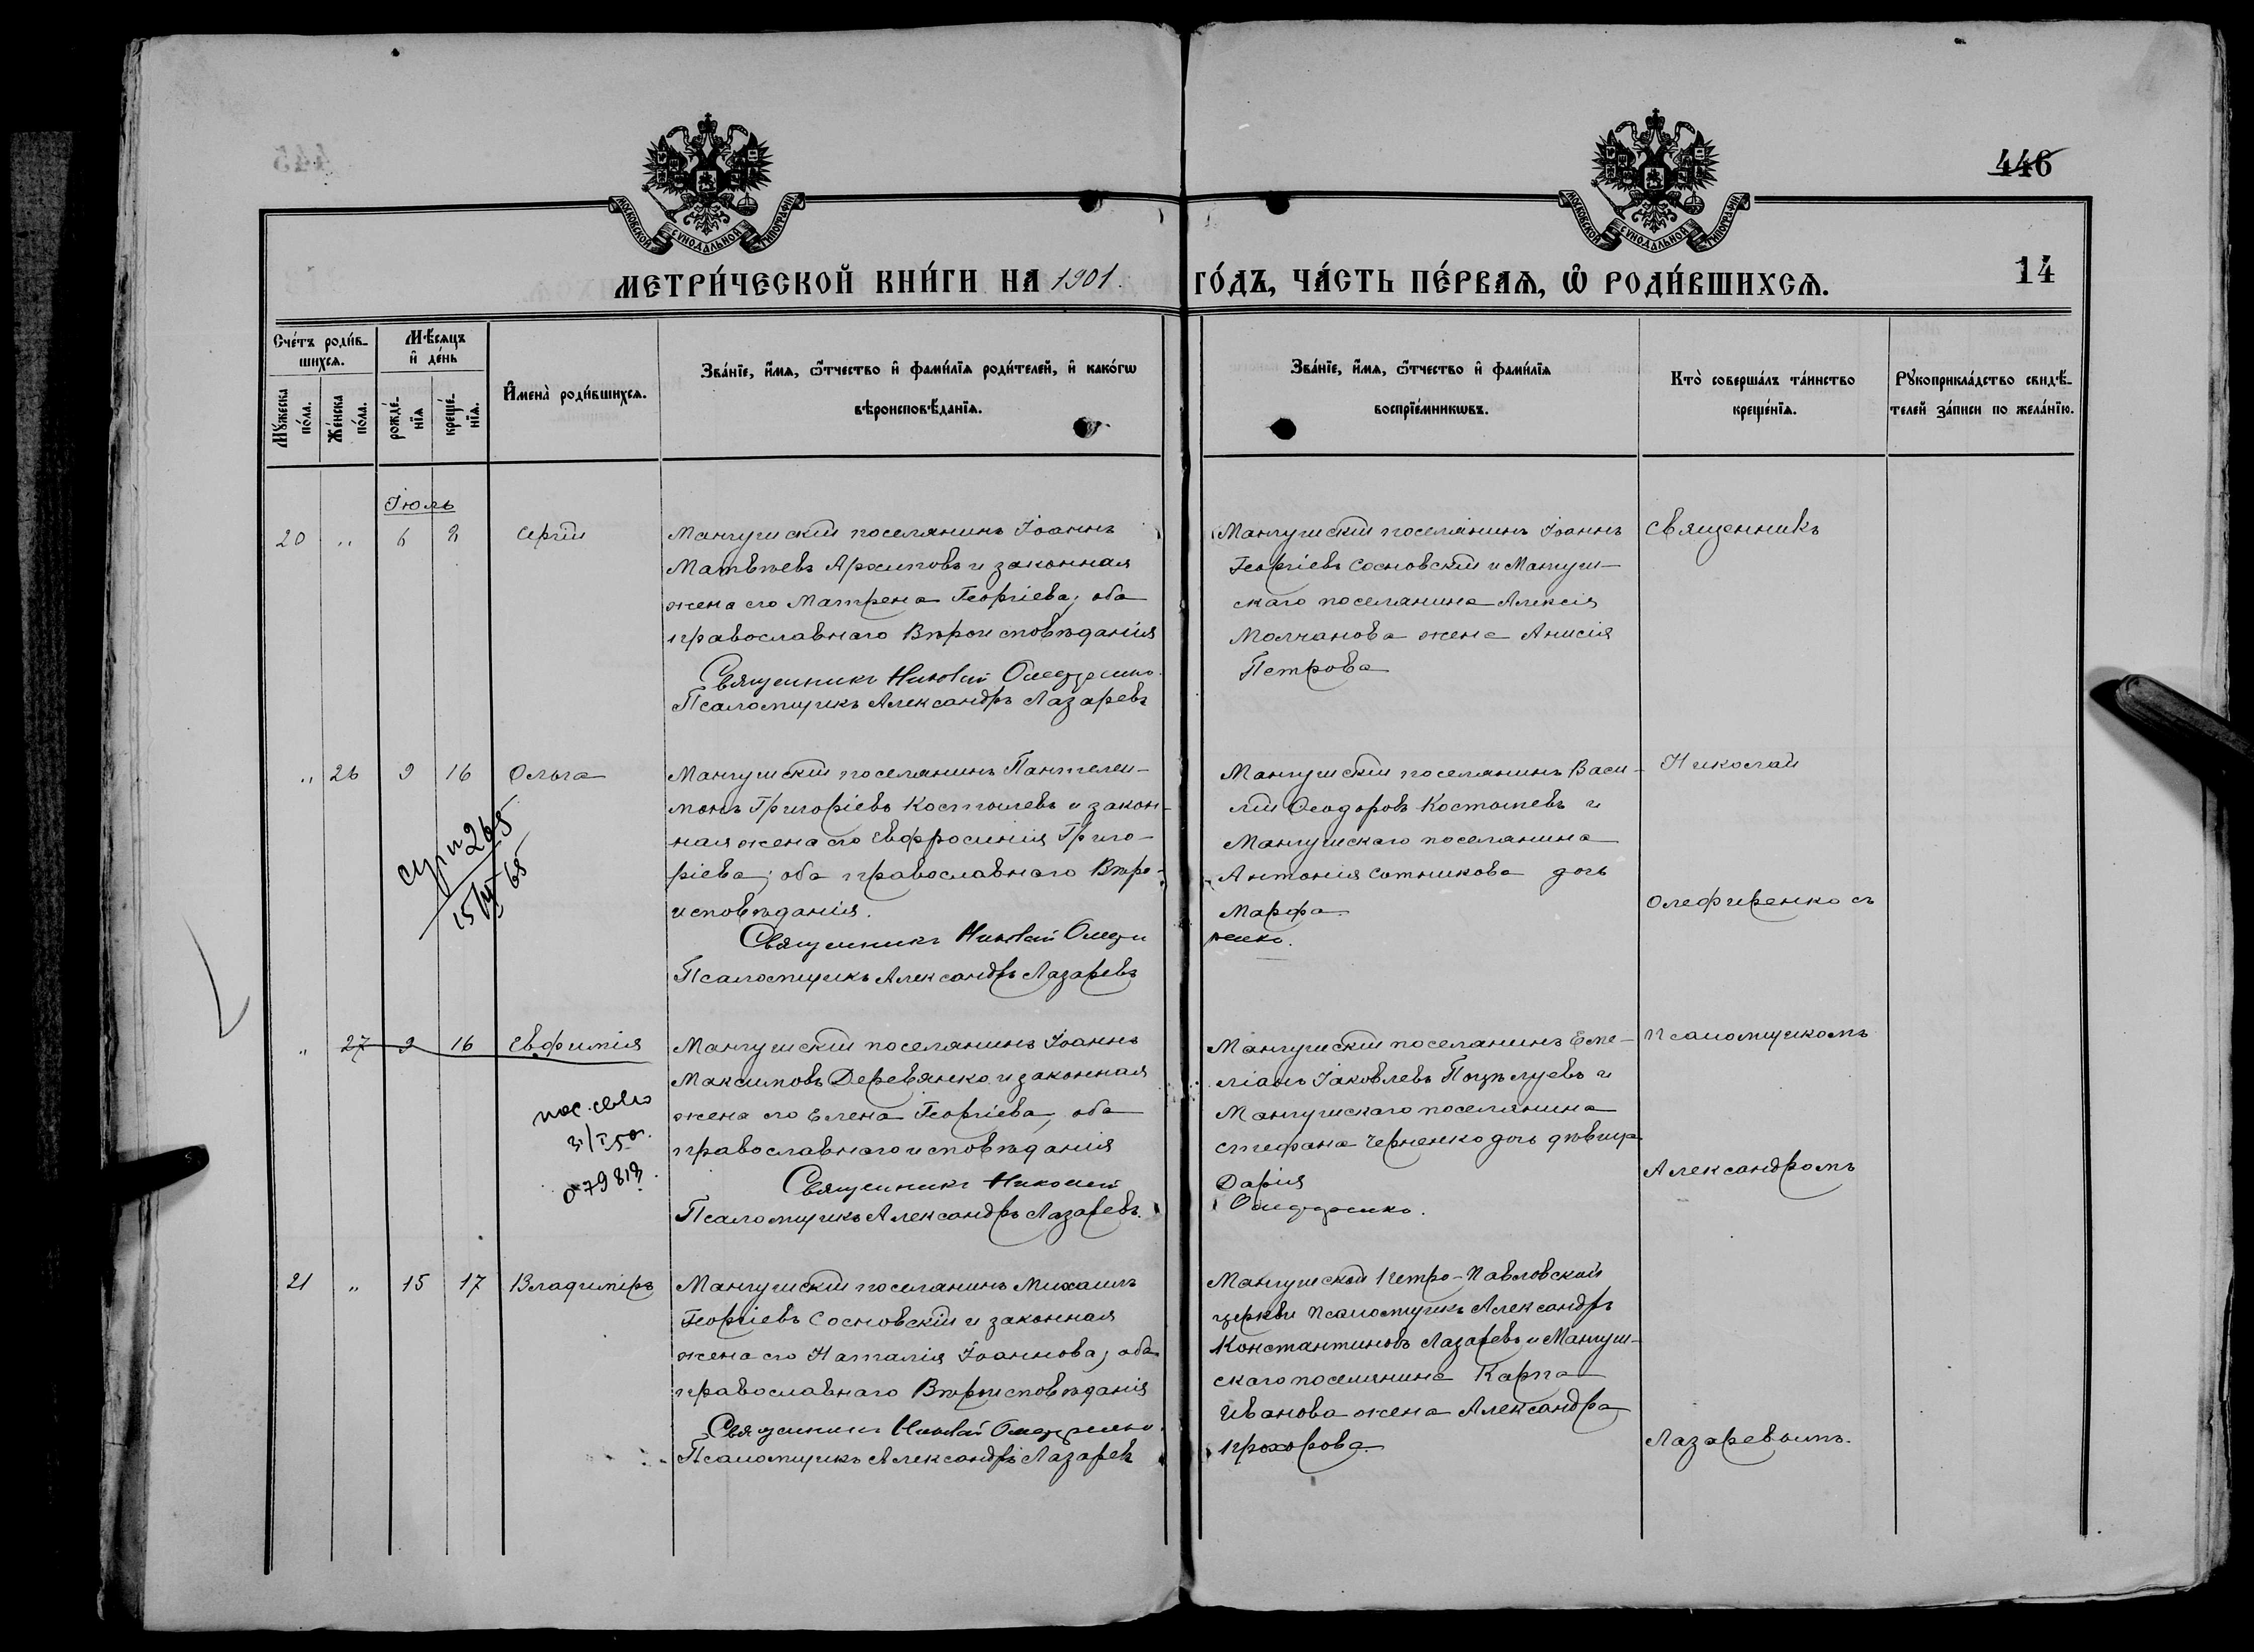 446
МОСКОВСКОЙ СѴНОДАЛЬНОЙ ТИПОГРАФІИ
МОСКОВСКОЙ СѴНОДАЛЬНОЙ ТИПОГРАФІИ
МЕТРИ́ЧЕСКОЙ КНИ́ГИ НА 1901. ГО́ДЪ, ЧА́СТЬ ПЕ́РВАѦ, Ѽ РОДИ́ВШИХСѦ.
14
Сче́тъ роди́в-
шихсѧ.
Мꙋ́жеска по́ла.
Же́нска по́ла.
Мѣ́сѧцъ
и҆ де́нь
рожде́-
нїѧ
креще́-
нїѧ.
И҆мена̀ роди́вшихсѧ.
Зва́нїе, и҆́мѧ, ѻ҆́тчество и҆ фами́лїѧ роди́телей, и҆ како́гѡ
вѣроисповѣ́данїѧ.
Зва́нїе, и҆́мѧ, ѻ҆́тчество и҆ фами́лїѧ
воспрїе́мникѡвъ.
Кто̀ соверша́лъ та́инство
креще́нїѧ.
Рꙋкоприкла́дство свидѣ́-
телей за́писи по жела́нїю.
Іюль
20 " 6 8 Сергій
Мангушскій поселянинъ Іоаннъ
Матвѣевъ Архиповъ и законная
жена его Матрена Георгіева; оба
православнаго Вѣроисповѣданія
Священникъ Николай Олефиренко.
Псаломщикъ Александръ Лазаревъ
Мангушскій поселянинъ Іоаннъ
Георгіевъ Сосновскій и Мангуш-
скаго поселянина Алексія
Молчанова жена Анисія
Петрова
Священникъ
" 26 9 16 Ольга
Мангушскій поселянинъ Пантелеи-
монъ Григоріевъ Костышевъ и закон-
ная жена его Евфросинія Григо-
ріева; оба православнаго Вѣро-
исповѣданія.
Священникъ Николай Олефи
Псаломщикъ Александръ Лазаревъ
Мангушскій поселянинъ Васи-
лій Ѳеодоровъ Костышевъ и
Мангушскаго поселянина
Антонія Сотникова дочь
Марфа.
ренко.
Николай
Олефиренко съ
265
15/VI 65
" 27 9 16 Евфимія
Мангушскій поселянинъ Іоаннъ
Максимовъ Деревянко и законная
жена его Елена Георгіева, оба
православнаго исповѣданія
Священникъ Николай
Псаломщикъ Александръ Лазаревъ.
Мангушскій поселянинъ Еме-
ліанъ Іаковлевъ Поцѣлуевъ и
Мангушскаго поселянина
Стефана Черненко дочь дѣвица
Дарія
Олефиренко.
Псаломщикомъ
Александромъ
21 " 15 17 Владиміръ
Мангушскій поселянинъ Михаилъ
Георгіевъ Сосновскій и законная
жена его Наталія Іоаннова; оба
православнаго Вѣроисповѣданія
Священникъ Николай Олефиренко.
Псаломщикъ Александръ Лазаревъ
Мангушской Петро-Павловской
церкви Псаломщикъ Александръ
Константиновъ Лазаревъ и Мангуш-
скаго поселянина Карпа
Иванова жена Александра
Прохорова.
Лазаревымъ.